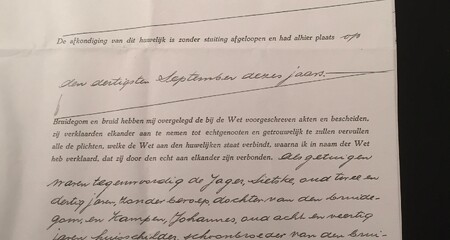 De afkondiging van dit huwelijk is zonder stuiting afgeloopen en had alhier plaats op
den dertigsten September dezes jaars.
Bruidegom en bruid hebben mij overgelegd de bij de Wet voorgeschreven akten en bescheiden,
zij verklaarden elkander aan te nemen tot echtgenooten en getrouwelijk te zullen vervullen
alle de plichten, welke de Wet aan den huwelijken staat verbindt, waarna ik in naam der Wet
heb verklaard, dat zij door den echt aan elkander zijn verbonden. Als getuigen
waren tegenwoordig de Jager, Sietske, oud twee en
dertig jaren, zonder beroep, dochter van den bruide-
gom, en Kampen, Johannes, oud acht en veertig
jaren, huisschilder, schoonbroeder van den brui-